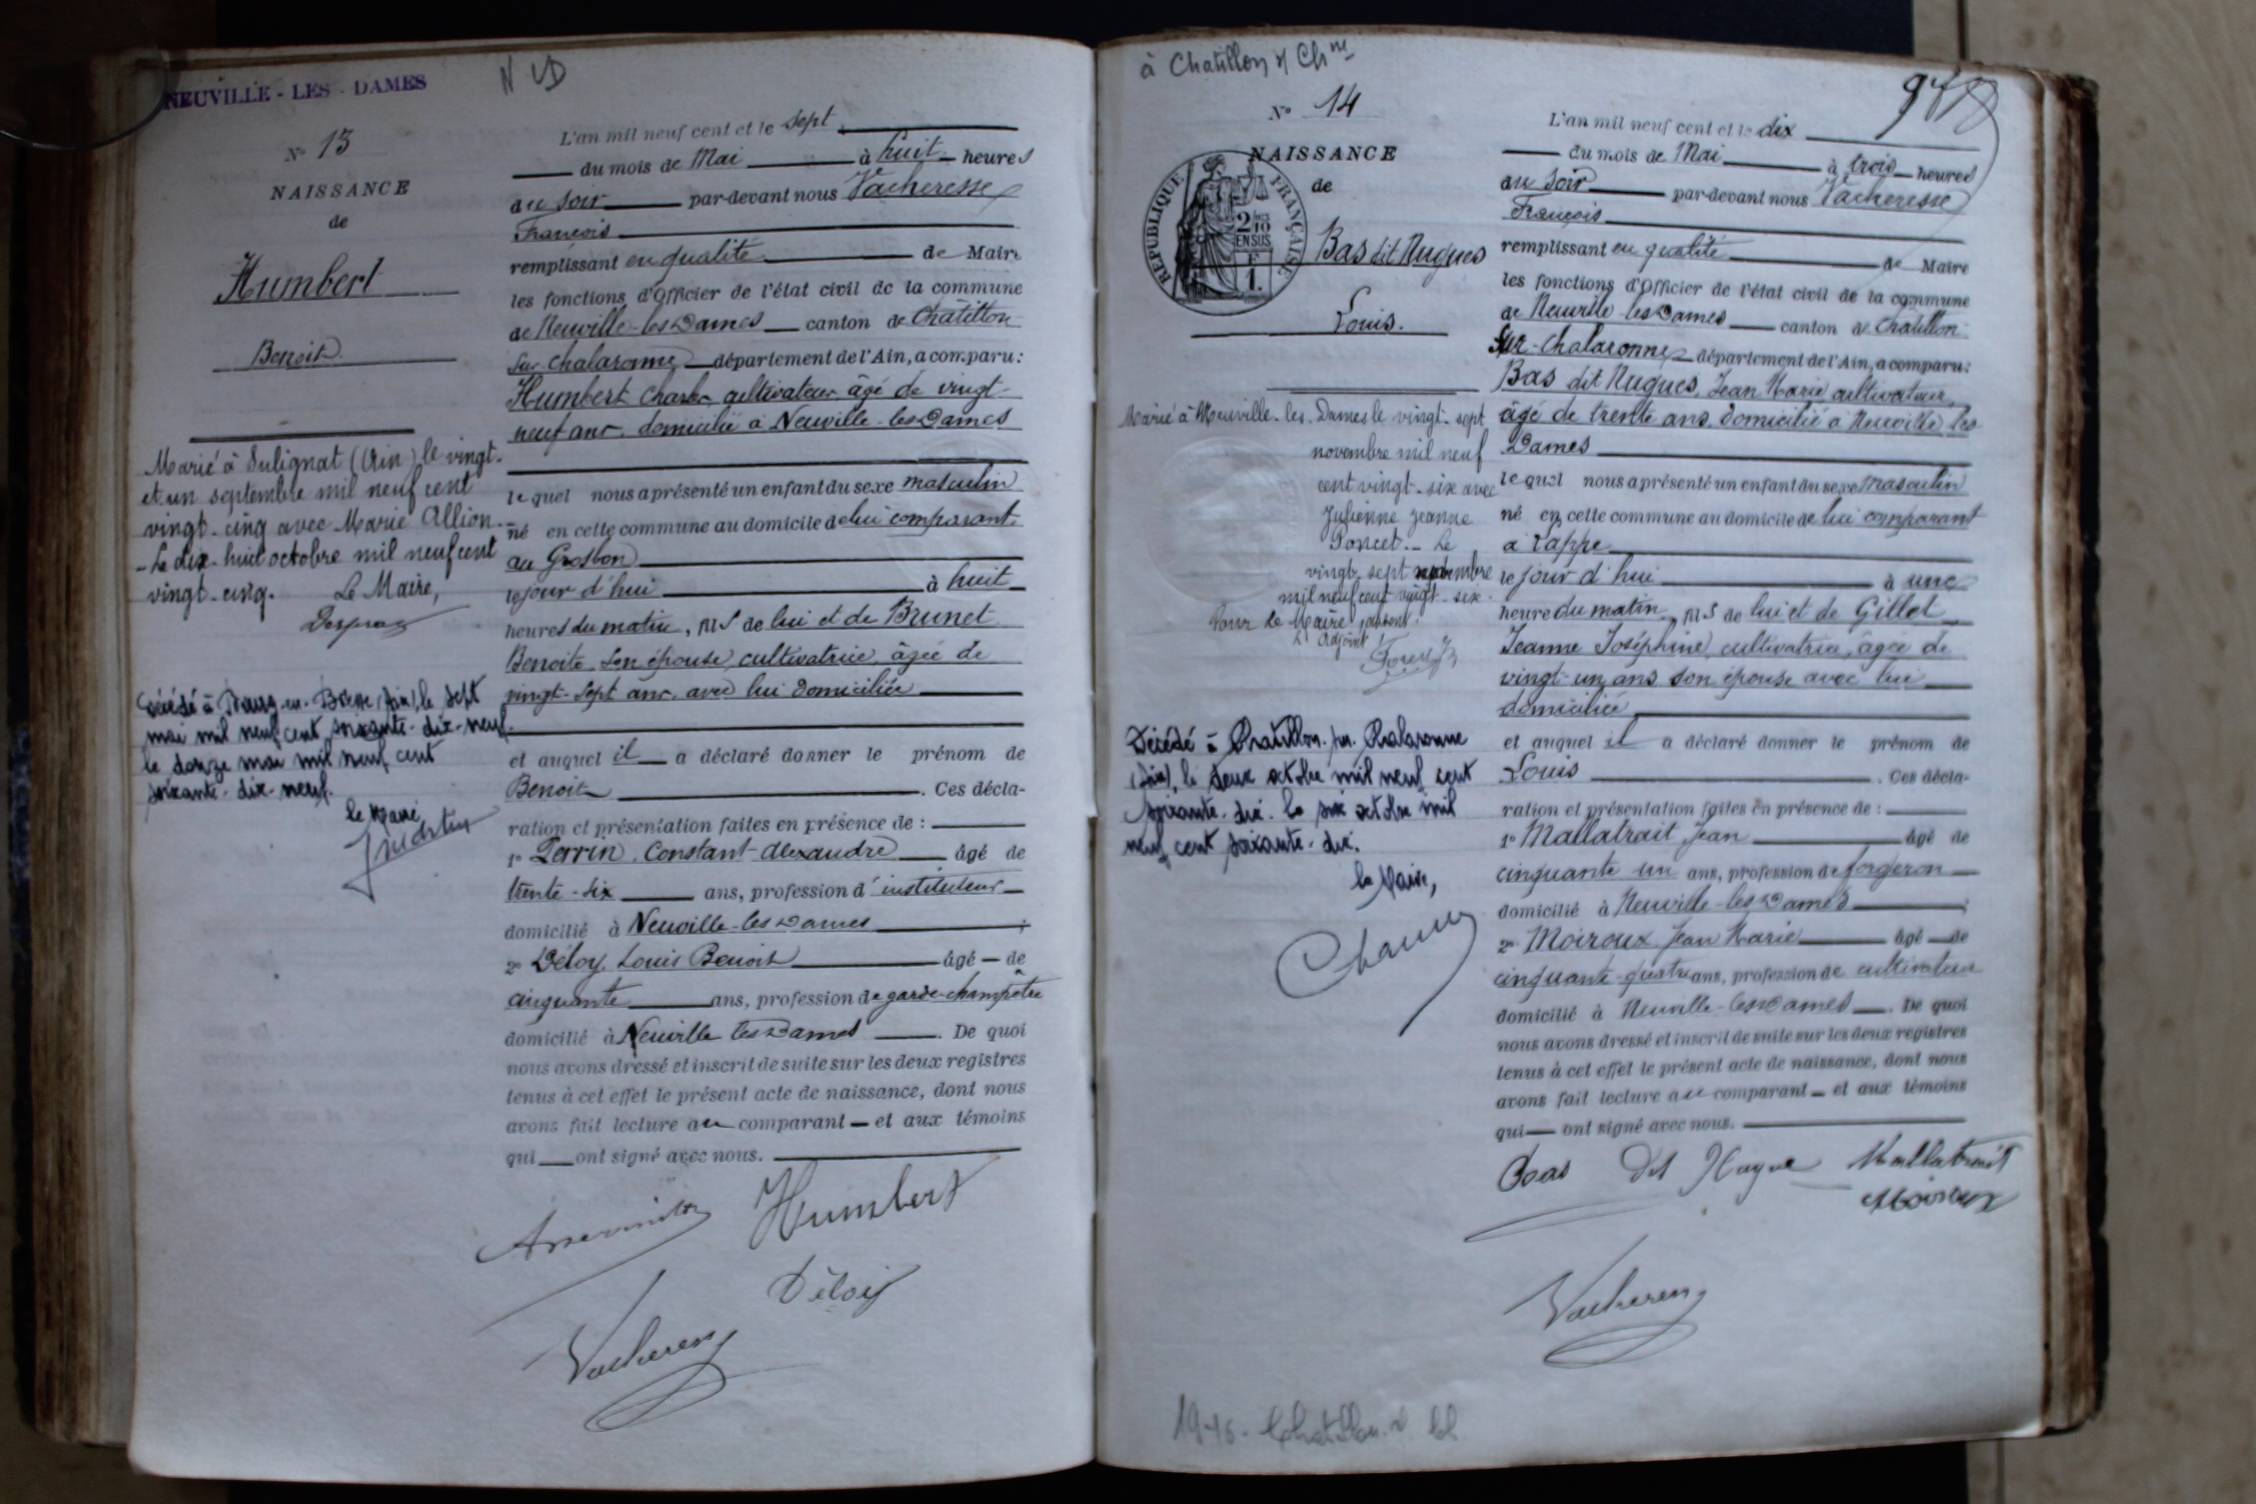 NEUVILLE - LES - DAMES
N LD
N° 13
NAISSANCE
de
Humbert
Benoit
Marié à Sulignat (Ain) le vingt-
et un septembre mil neuf cent
vingt-cinq avec Marie Allion.
- Le dix-huit octobre mil neuf cent
vingt-cinq. Le Maire,
Décédé à Bourg-en-Bresse (Ain), le sept
mai mil neuf cent soixante-dix-neuf.
le douze mai mil neuf cent
soixante-dix-neuf.
le Maire
L'an mil neuf cent et le sept
du mois de Mai à huit heures
du soir par-devant nous Vacheresse
François
remplissant en qualité de Maire
les fonctions d'Officier de l'état civil de la commune
de Neuville-les-Dames canton de Châtillon-
sur-Chalaronne département de l'Ain, a comparu:
Humbert Charles cultivateur âgé de vingt-
neuf ans, domicilié à Neuville-les-Dames
lequel nous a présenté un enfant du sexe masculin
né en cette commune au domicile de lui comparant
au Grosbon
le jour d'hui à huit
heures du matin, fils de lui et de Brunet
Benoite, son épouse, cultivatrice, âgée de
vingt-sept ans, avec lui domiciliée
et auquel il a déclaré donner le prénom de
Benoit. Ces décla-
ration et présentation faites en présence de :
1° Perrin, Constant-Alexandre âgé de
trente-six ans, profession d'instituteur
domicilié à Neuville-les-Dames ;
2° Déloy, Louis Benoit âgé de
cinquante ans, profession de garde-champêtre
domicilié à Neuville-les-Dames. De quoi
nous avons dressé et inscrit de suite sur les deux registres
tenus à cet effet le présent acte de naissance, dont nous
avons fait lecture au comparant et aux témoins
qui ont signé avec nous.
Humbert
Déloy
Vacheresse
à Chatillon s/ Chne
N° 14
NAISSANCE
de
RÉPUBLIQUE FRANÇAISE
2/10 EN SUS
1.
Bas dit Nugues
Louis.
Marié à Neuville-les-Dames le vingt-sept
novembre mil neuf
cent vingt-six avec
Julienne Jeanne
Poncet. - Le
vingt-sept novembre
mil neuf cent vingt-six.
Pour le Maire absent:
L'adjoint
Décédé à Chatillon-sur-Chalaronne
(Ain), le deux octobre mil neuf cent
soixante-dix. le six octobre mil
neuf cent soixante-dix.
le Maire,
L'an mil neuf cent et le dix
du mois de Mai à trois heures
du soir par-devant nous Vacheresse
François
remplissant en qualité de Maire
les fonctions d'Officier de l'état civil de la commune
de Neuville-les-Dames canton de Châtillon-
sur-Chalaronne département de l'Ain, a comparu:
Bas dit Nugues, Jean Marie cultivateur,
âgé de trente ans, domicilié à Neuville-les
Dames
lequel nous a présenté un enfant du sexe masculin
né en cette commune au domicile de lui comparant
à Tappe
le jour d'hui à une
heure du matin, fils de lui et de Gillet
Jeanne Joséphine, cultivatrice, âgée de
vingt-un ans son épouse avec lui
domiciliée
et auquel il a déclaré donner le prénom de
Louis. Ces décla-
ration et présentation faites en présence de :
1° Mallatrait Jean âgé de
cinquante un ans, profession de forgeron
domicilié à Neuville-les-Dames ;
2° Moiroux Jean Marie âgé de
cinquante-quatre ans, profession de cultivateur
domicilié à Neuville-les-Dames. De quoi
nous avons dressé et inscrit de suite sur les deux registres
tenus à cet effet le présent acte de naissance, dont nous
avons fait lecture au comparant et aux témoins
qui ont signé avec nous.
Bas Dit Nugue Mallatrait
Moiroux
Vacheresse